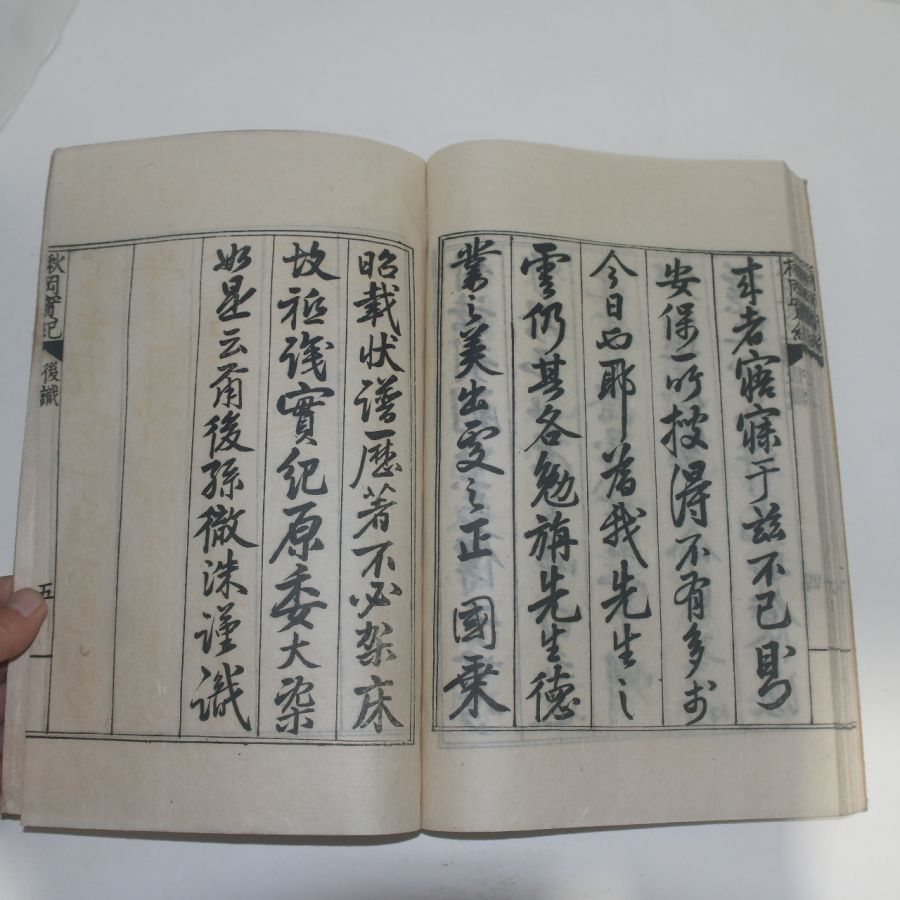 來者寤寐于玆不已則
安保一所搜得不有多於
今日也耶蓋我先生之
雲仍其各勉旃先生德
業之美出處之正 國乘
昭載狀譜歷著不必架床
故祗識實紀原委大槩
如是云甭後孫徹洙謹識
秋岡實紀
後識
五